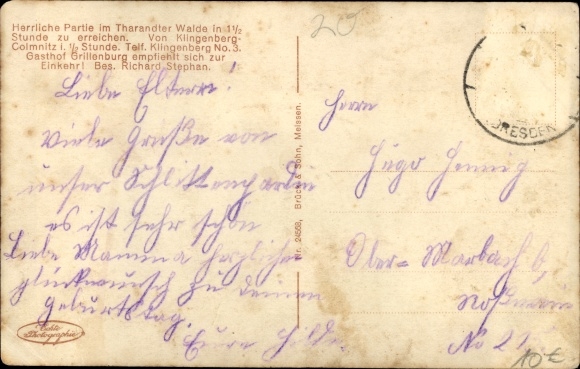 Herrliche Partie im Tharandter Walde in 1½
Stunde zu erreichen. Von Klingenberg-
Colmnitz i. ½ Stunde. Telf. Klingenberg No. 3.
Gasthof Grillenburg empfiehlt sich zur
Einkehr! Bes. Richard Stephan.
Liebe Eltern!
Viele Grüße von
unser
es ist sehr schön
Liebe Mamma herzlichen
glückwunsch zu deinem
Geburtstag.
Eure Hilde
Echte
Photographie
Nr. 24558, Brück & Sohn, Meissen.
20
DRESDEN
Herrn
Hugo Hennig
Ober=Marbach b,
No 21
10€